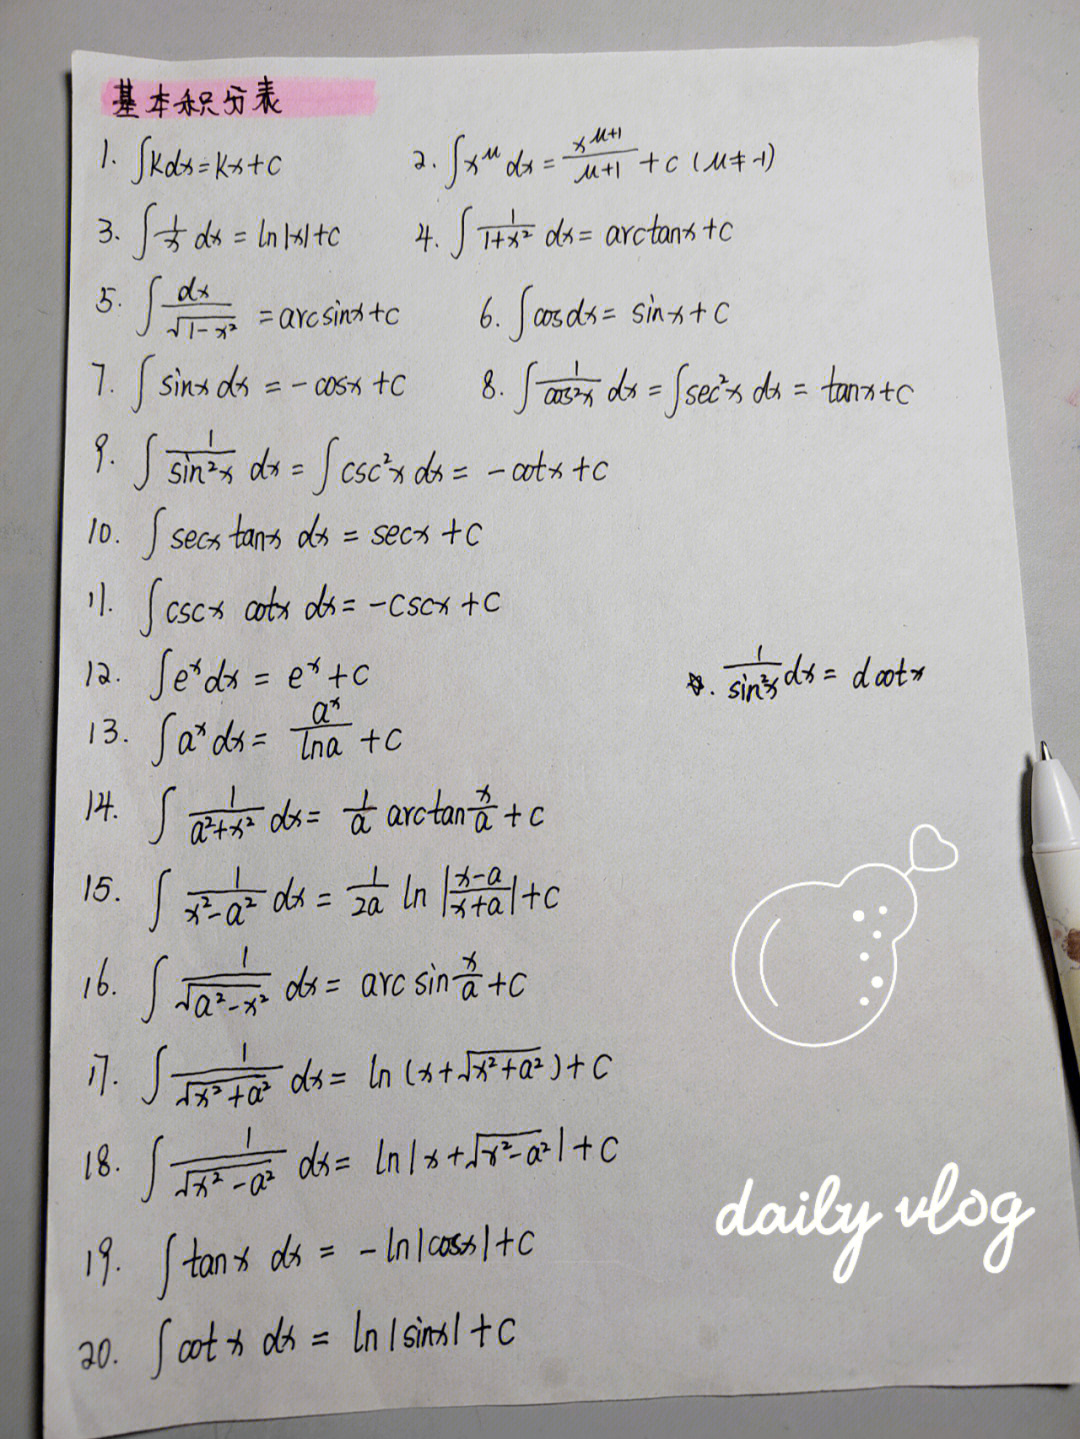 基本积分表
1. ∫kdx=kx+c 2. ∫x^μ dx = x^(μ+1)/(μ+1) + c (μ≠-1)
3. ∫1/x dx = ln|x|+c 4. ∫1/(1+x²) dx = arctanx+c
5. ∫dx/√(1-x²) = arcsinx+c 6. ∫cosdx = sinx+c
7. ∫sinx dx = -cosx+c 8. ∫1/cos²x dx = ∫sec²x dx = tanx+c
9. ∫1/sin²x dx = ∫csc²x dx = -cotx+c
10. ∫secx tanx dx = secx+c
11. ∫cscx cotx dx = -cscx+c
12. ∫e^x dx = e^x+c
☆. 1/sin²x dx = d cotx
13. ∫a^x dx = a^x/lna +c
14. ∫1/(a²+x²) dx = 1/a arctan x/a +c
15. ∫1/(x²-a²) dx = 1/2a ln |(x-a)/(x+a)|+c
16. ∫1/√(a²-x²) dx = arcsin x/a +c
17. ∫1/√(x²+a²) dx = ln(x+√(x²+a²))+c
18. ∫1/√(x²-a²) dx = ln|x+√(x²-a²)|+c
19. ∫tanx dx = -ln|cosx|+c
daily vlog
20. ∫cotx dx = ln|sinx|+c